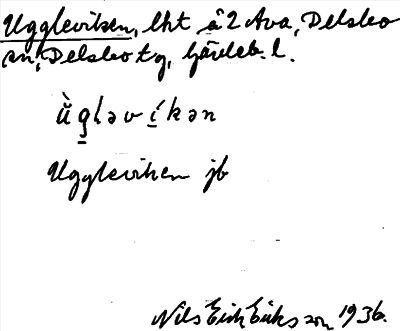 Uggleviken, lht å 2 Ava, Delsbo
sn, Delsbo tg, Gävleb. l.
ùg̲ləvíkən
Uggleviken jb
Nils Erik Eriksson 1936.